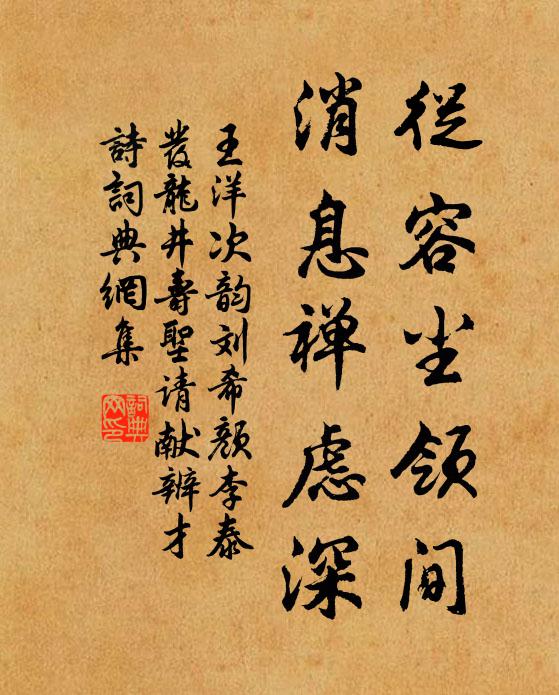 從容坐領間
消息禅慮深
王洋次韵刘希颜李泰
發龍井壽聖请献辨才
詩詞典網集
詞典
网印